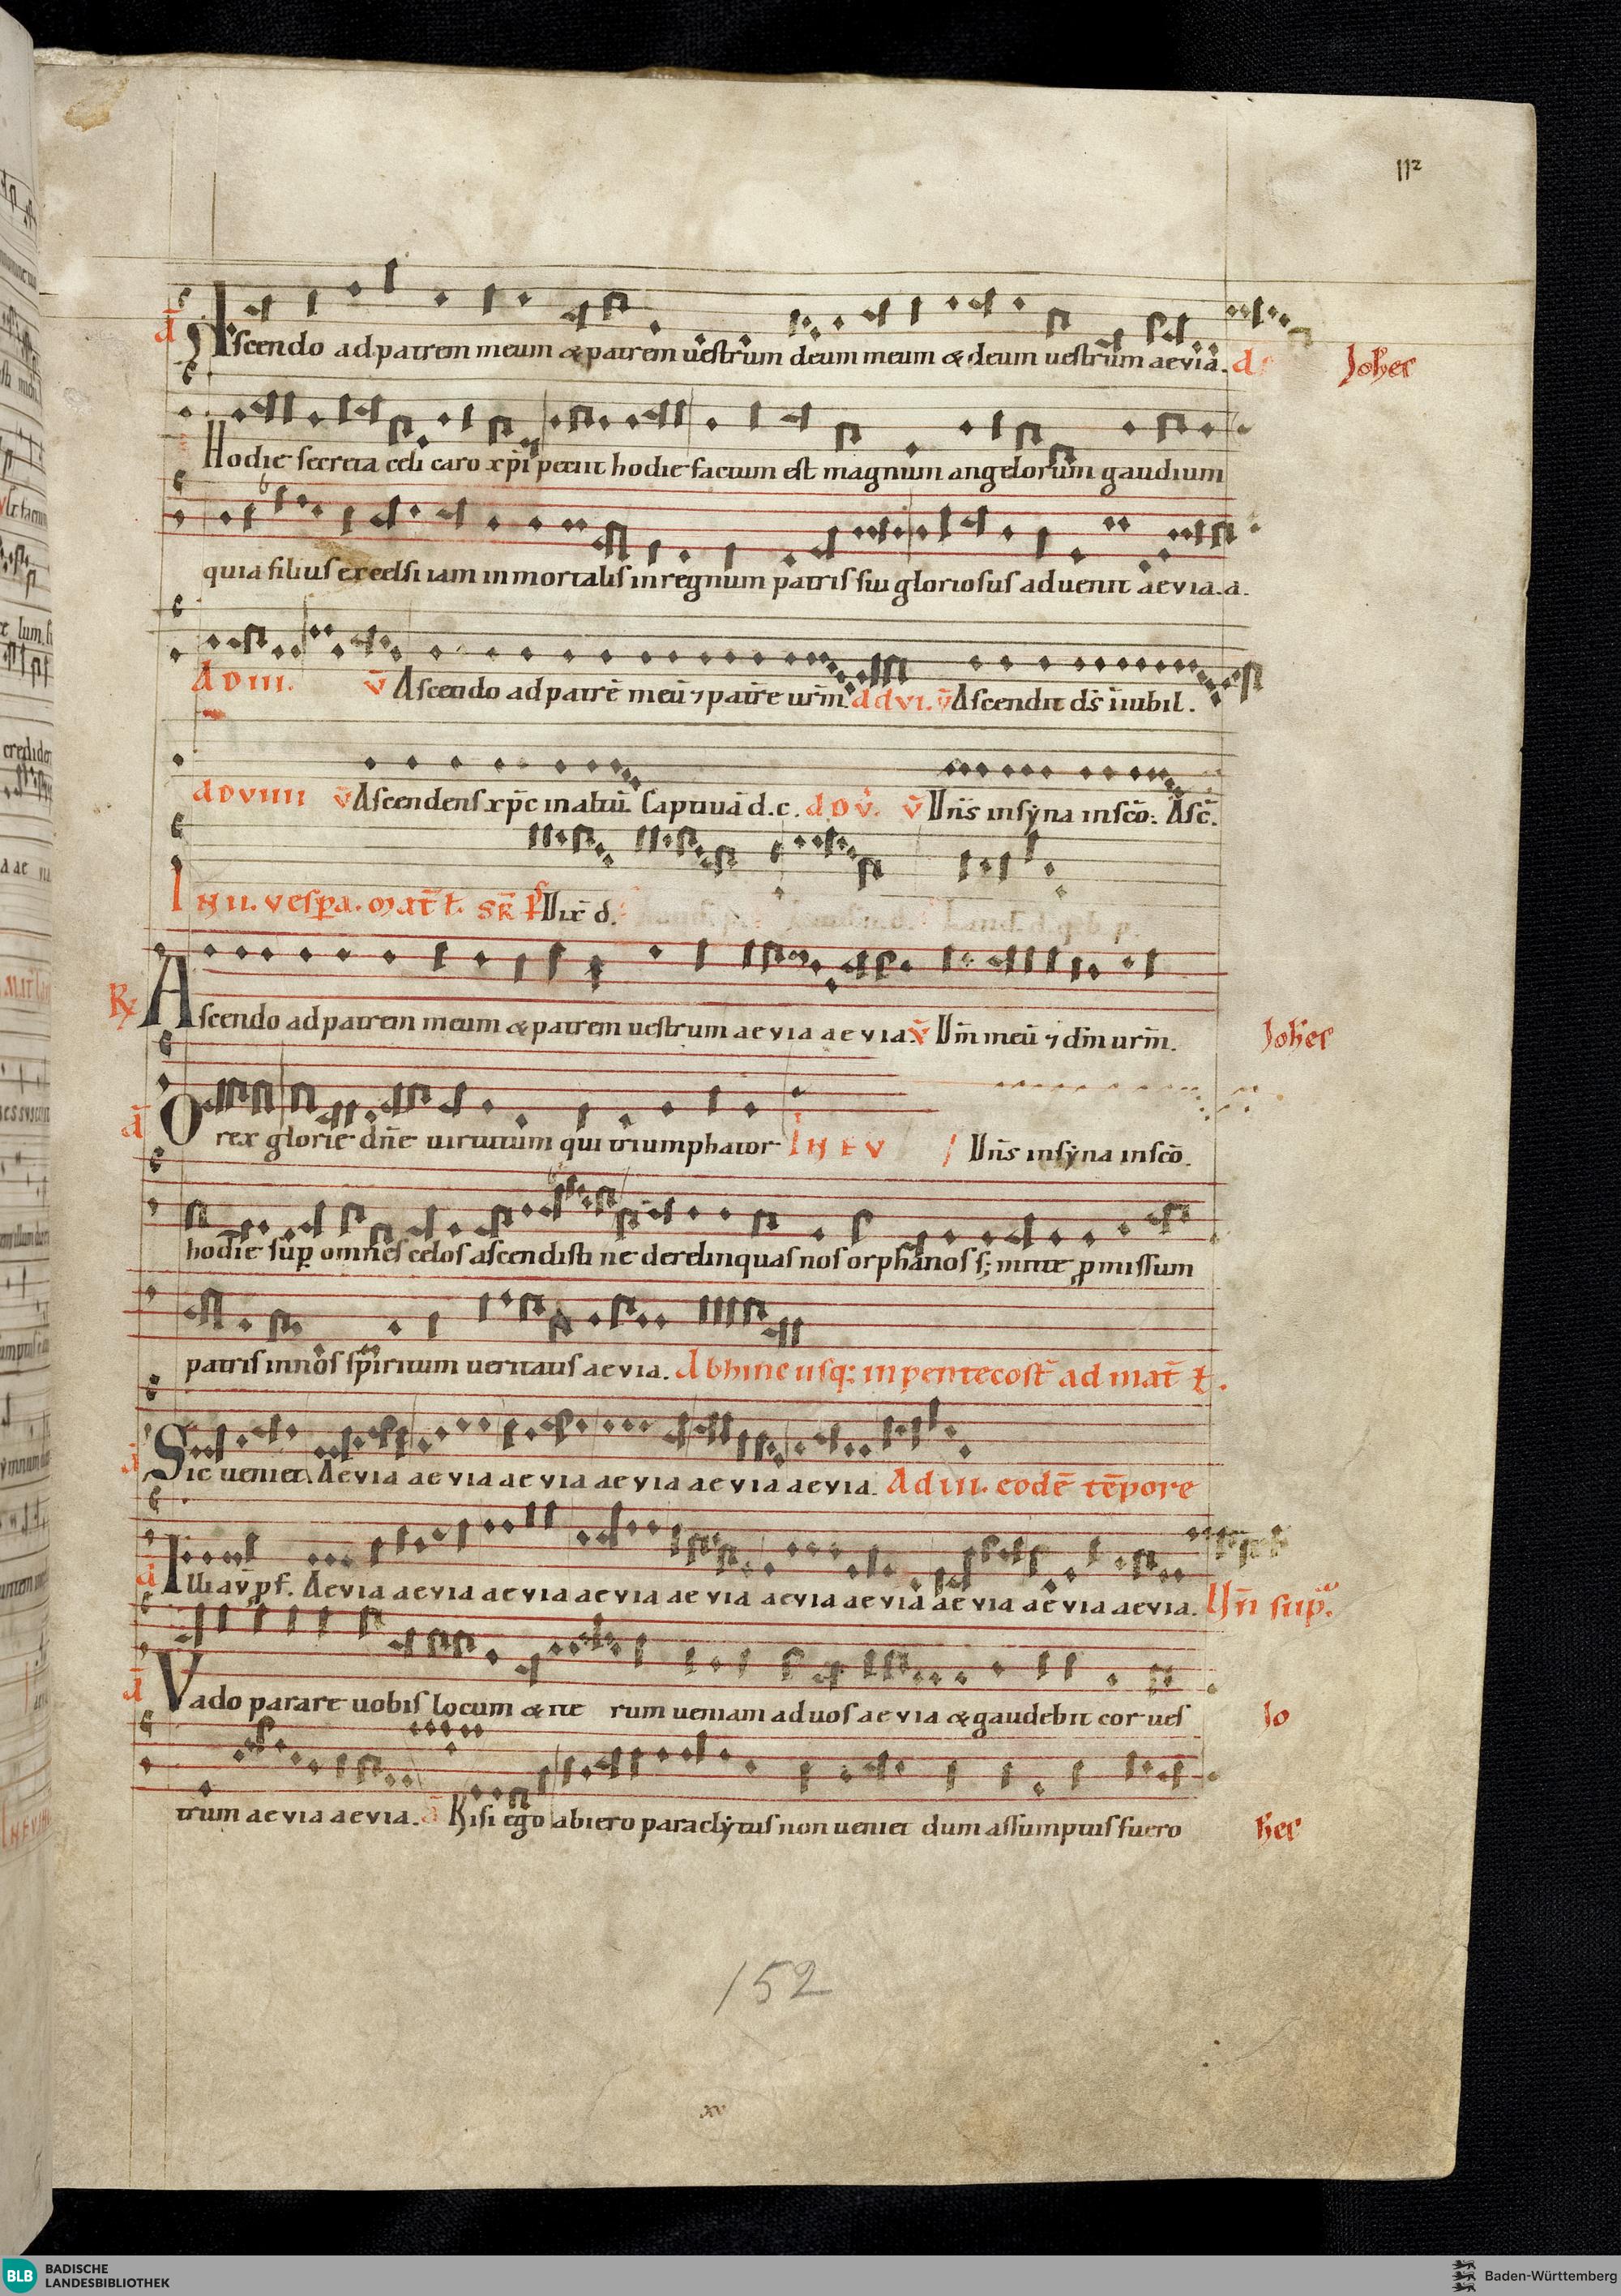 112
ā Ascendo ad patrem meum & patrem uestrum deum meum & deum uestrum aevia. d Johes
Hodie secreta celi caro xp̄i petiit hodie factum est magnum angelorum gaudium
quia filius excelsi iam inmortalis in regnum patris sui gloriosus aduenit aevia. a.
AD III. v̄ Ascendo ad patrē meū ⁊ patrē urm̄. ad vi. v̄ Ascendit dn̄s īiubil.
AD VIIII v̄ Ascendens xp̄c in altū. Captiuā d.c. AD v̄. v̄ Dn̄s in syna in scō. Asc̄.
IN II. vespa. mat̄ t̄. SR̄ ps Dix̄ d.
R̷ Ascendo ad patrem meum & patrem uestrum aevia aevia. v̄ Dm̄ meū ⁊ dm̄ urm̄. Johes
ā O rex glorie dn̄e uirtutum qui triumphator IN EV Dn̄s in syna in scō.
hodie sup omnes celos ascendisti ne derelinquas nos orphanos s; mitte p̄missum
patris in nos sp̄iritum ueritatis aevia. Abhinc usq; in pentecost̄ ad mat̄ t̄.
ā Sic ueniet. Aevia aevia aevia aevia aevia aevia. Ad III. eodē tēpore
ā Illi av̄ pf. Aevia aevia aevia aevia aevia aevia aevia aevia aevia aevia. Un̄ sup.
ā Vado parare uobis locum & ite rum ueniam ad uos aevia & gaudebit cor ues Jo
trum aevia aevia. ā Nisi ego abiero paraclytus non ueniet dum assumptus fuero hes
152
xv
BLB BADISCHE LANDESBIBLIOTHEK
Baden-Württemberg